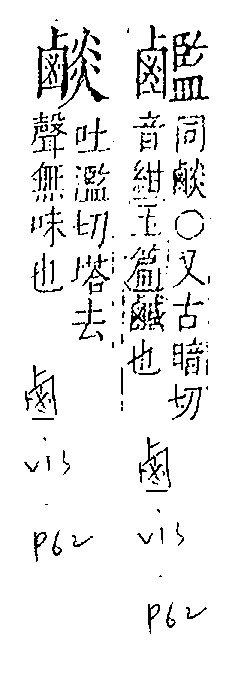 ⿰鹵監
同⿰鹵炎○又古暗切
音紺玉篇鹹也
鹵
V13
P62
⿰鹵炎
吐濫切塔去
聲無味也
鹵
V13
P62